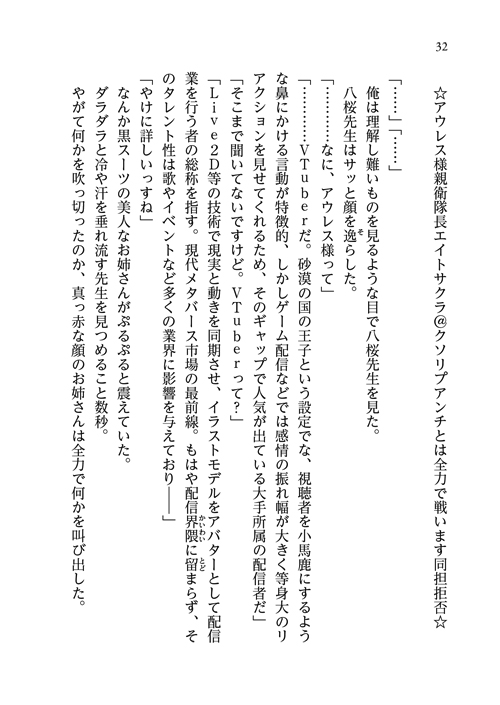 32
☆アウレス様親衛隊長エイトサクラ＠クソリプアンチとは全力で戦います同担拒否☆
「……」「……」
俺は理解し難いものを見るような目で八桜先生を見た。
八桜先生はサッと顔を逸らした。
「…………なに、アウレス様って」
「…………VTuberだ。砂漠の国の王子という設定でな、視聴者を小馬鹿にするよう
な鼻にかける言動が特徴的、しかしゲーム配信などでは感情の振れ幅が大きく等身大のリ
アクションを見せてくれるため、そのギャップで人気が出ている大手所属の配信者だ」
「そこまで聞いてないですけど。VTuberって？」
「Live2D等の技術で現実と動きを同期させ、イラストモデルをアバターとして配信
業を行う者の総称を指す。現代メタバース市場の最前線。もはや配信界隈に留まらず、そ
のタレント性は歌やイベントなど多くの業界に影響を与えており――」
「やけに詳しいっすね」
なんか黒スーツの美人なお姉さんがぷるぷると震えていた。
ダラダラと冷や汗を垂れ流す先生を見つめること数秒。
やがて何かを吹っ切ったのか、真っ赤な顔のお姉さんは全力で何かを叫び出した。